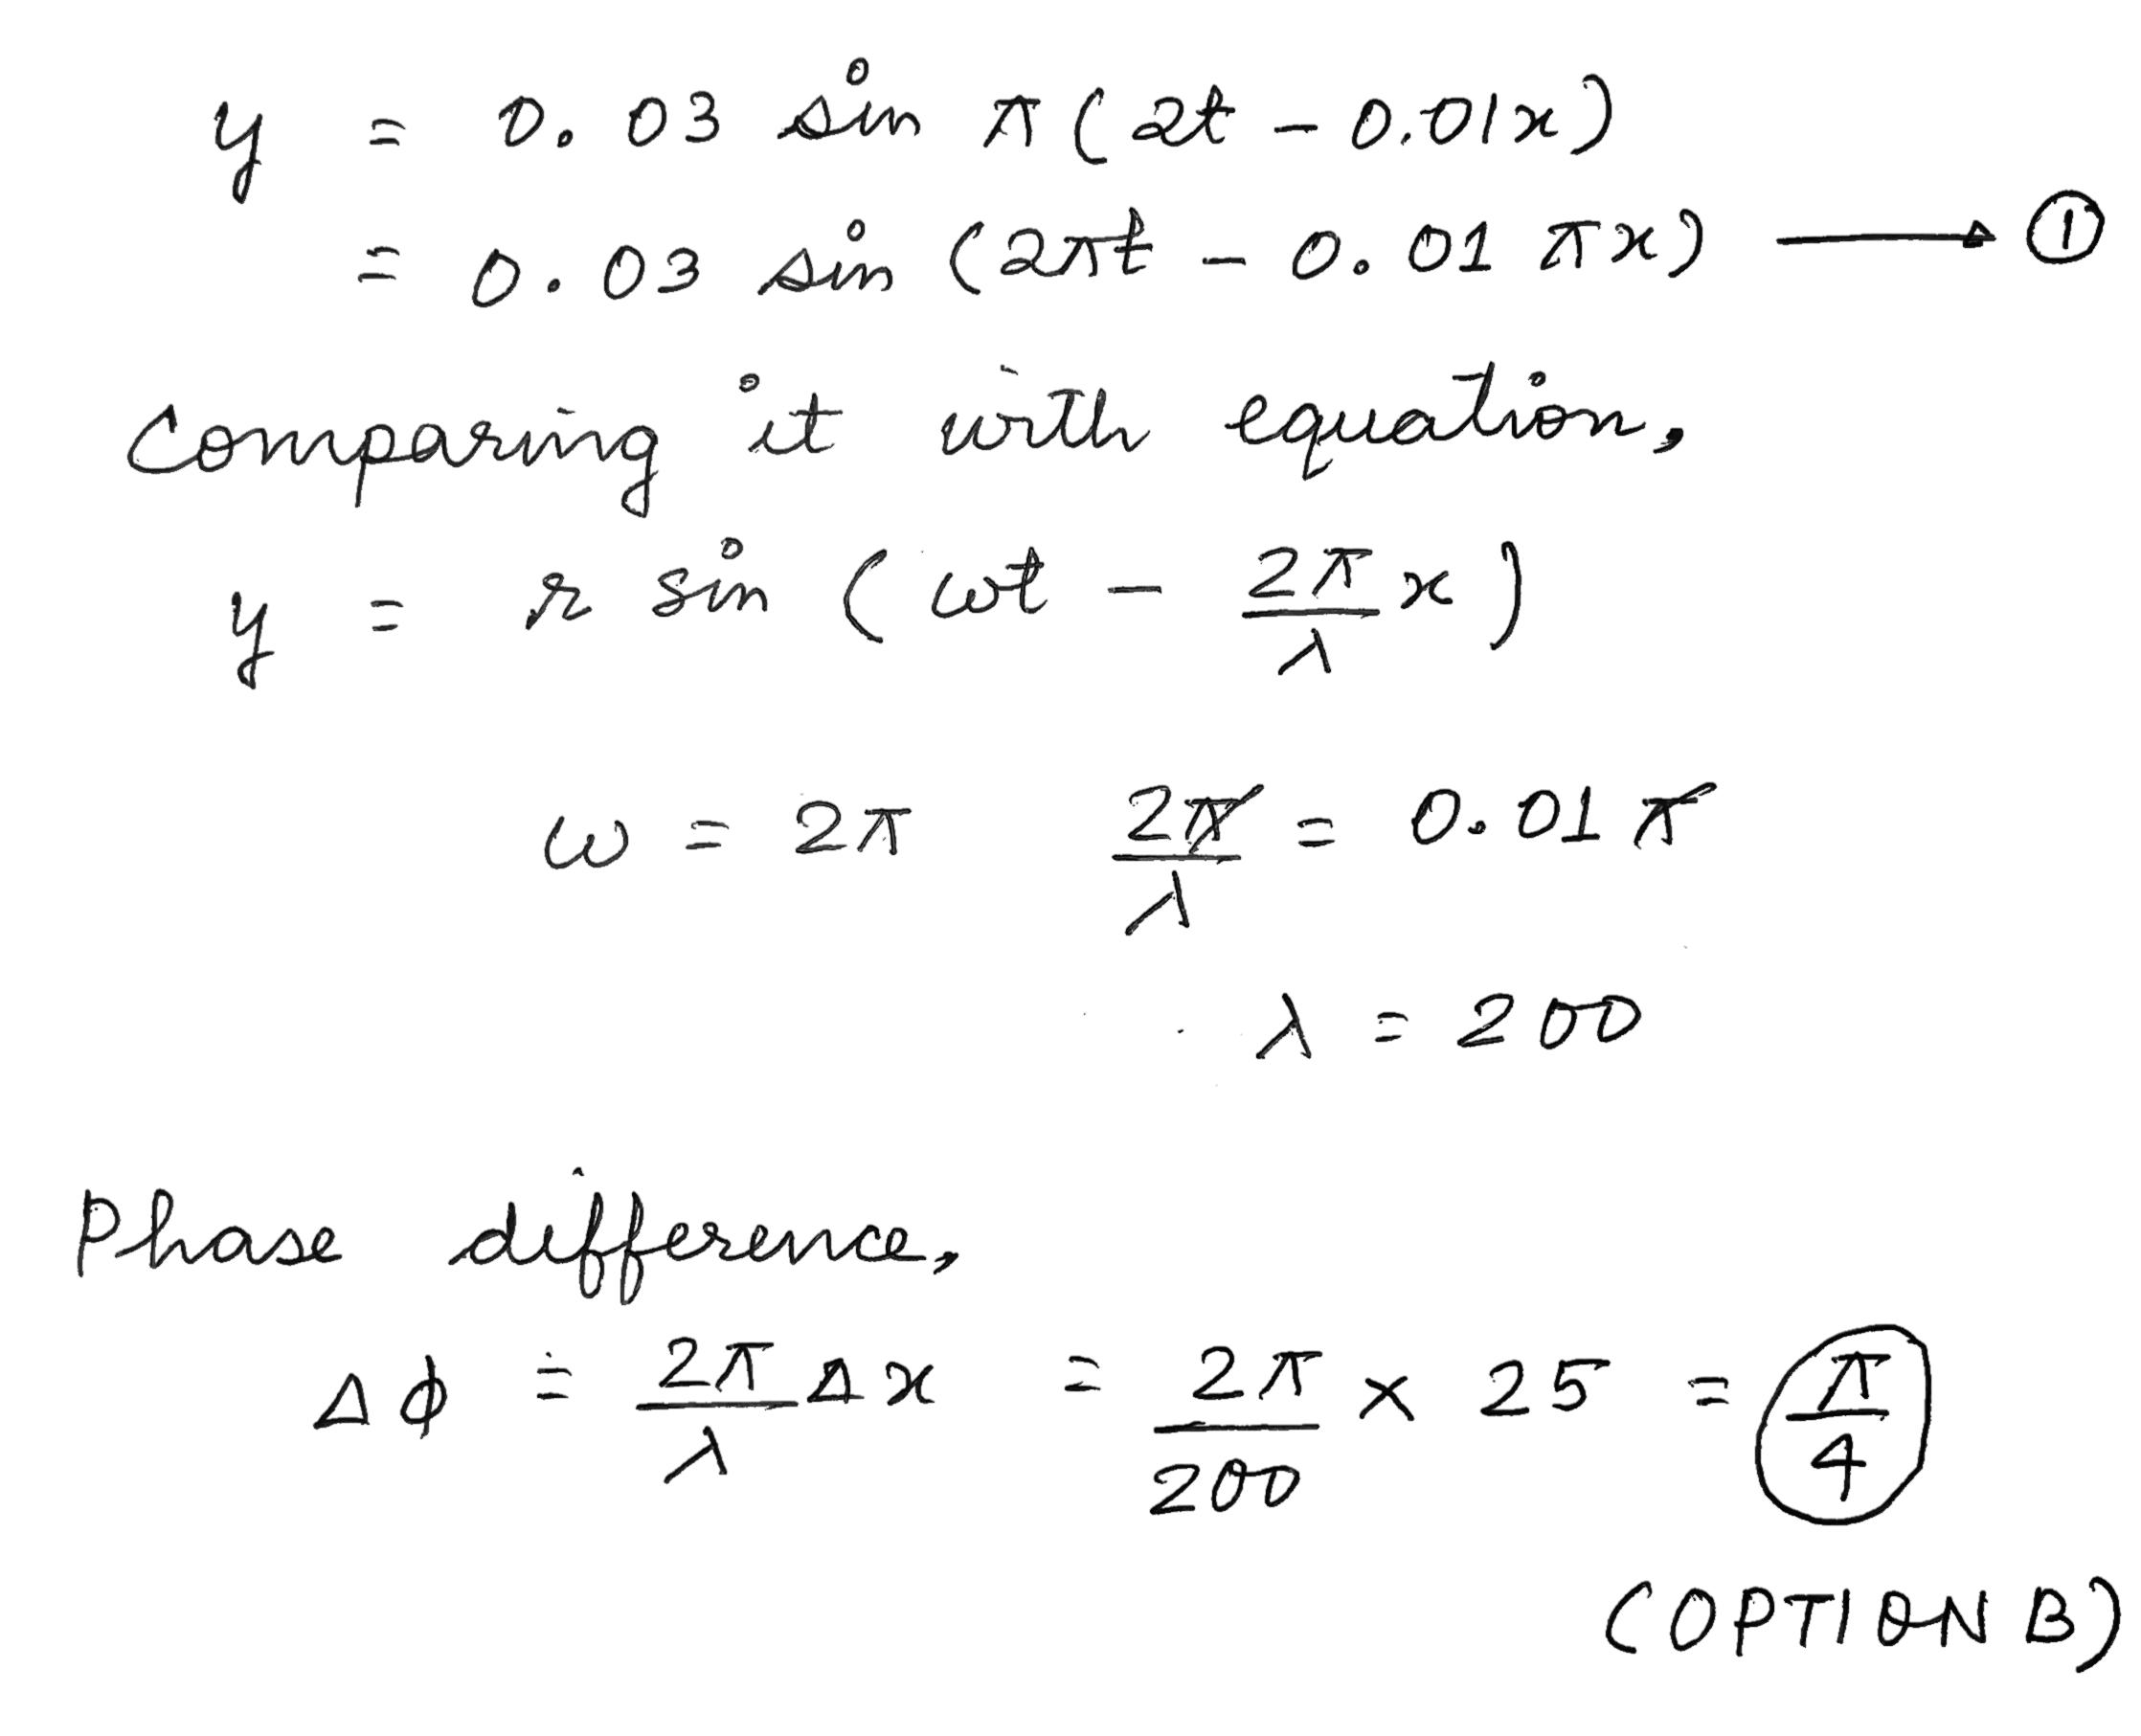 y = 0.03 sin π(2t - 0.01x)
= 0.03 sin (2πt - 0.01πx) → ①
Comparing it with equation,
y = r sin (ωt - 2π/λ x)
ω = 2π 2π/λ = 0.01π
λ = 200
Phase difference,
Δϕ = 2π/λ Δx = 2π/200 × 25 = π/4
(OPTION B)